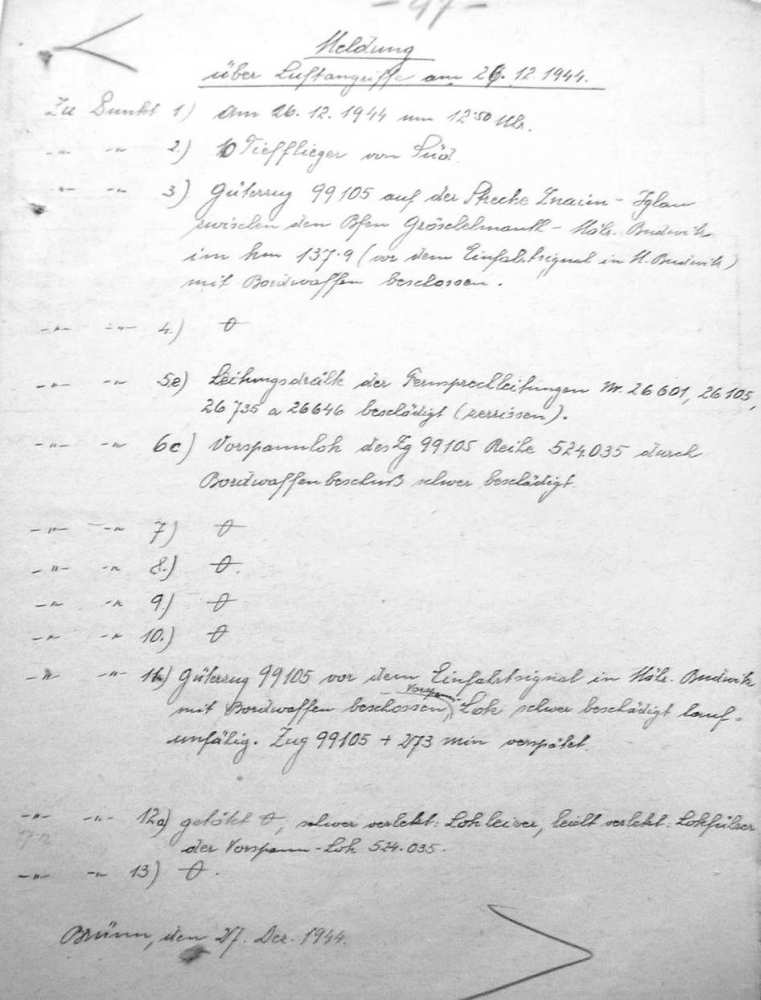 - 47 -
Meldung
über Luftangriffe am 26. 12. 1944.
Zu Punkt 1) Am 26. 12. 1944 um 12·50 Uhr.
-"- -"- 2.) 10 Tiefflieger von Süd.
-"- -"- 3) Güterzug 99105 auf der Strecke Znaim - Iglau
zwischen den Bfen Gröschelmauth - Mähr. Budwitz
im km 137·9 (vor dem Einfahrtsignal in M. Budwitz)
mit Bordwaffen beschossen.
-"- -"- 4.) 0
-"- -"- 5e) Leitungsdrähte der Fernsprechleitungen Nr. 26601, 26105,
26735 a 26646 beschädigt (zerrissen).
-"- -"- 6c) Vorspannlok des Zg 99105 Reihe 524.035 durch
Bordwaffenbeschuß schwer beschädigt.
-"- -"- 7.) 0
-"- -"- 8.) 0.
-"- -"- 9.) 0
-"- -"- 10.) 0
-"- -"- 11.) Güterzug 99105 vor dem Einfahrtsignal in Mähr. Budwitz
mit Bordwaffen beschossen, Vorspann Lok schwer beschädigt lauf-
unfähig. Zug 99105 + 273 min verspätet.
-"- -"- 12a) getötet 0, schwer verletzt: Lokheizer, leicht verletzt: Lokführer
der Vorspann-Lok 524.035.
-"- -"- 13) 0.
Brünn, den 27. Dez. 1944.